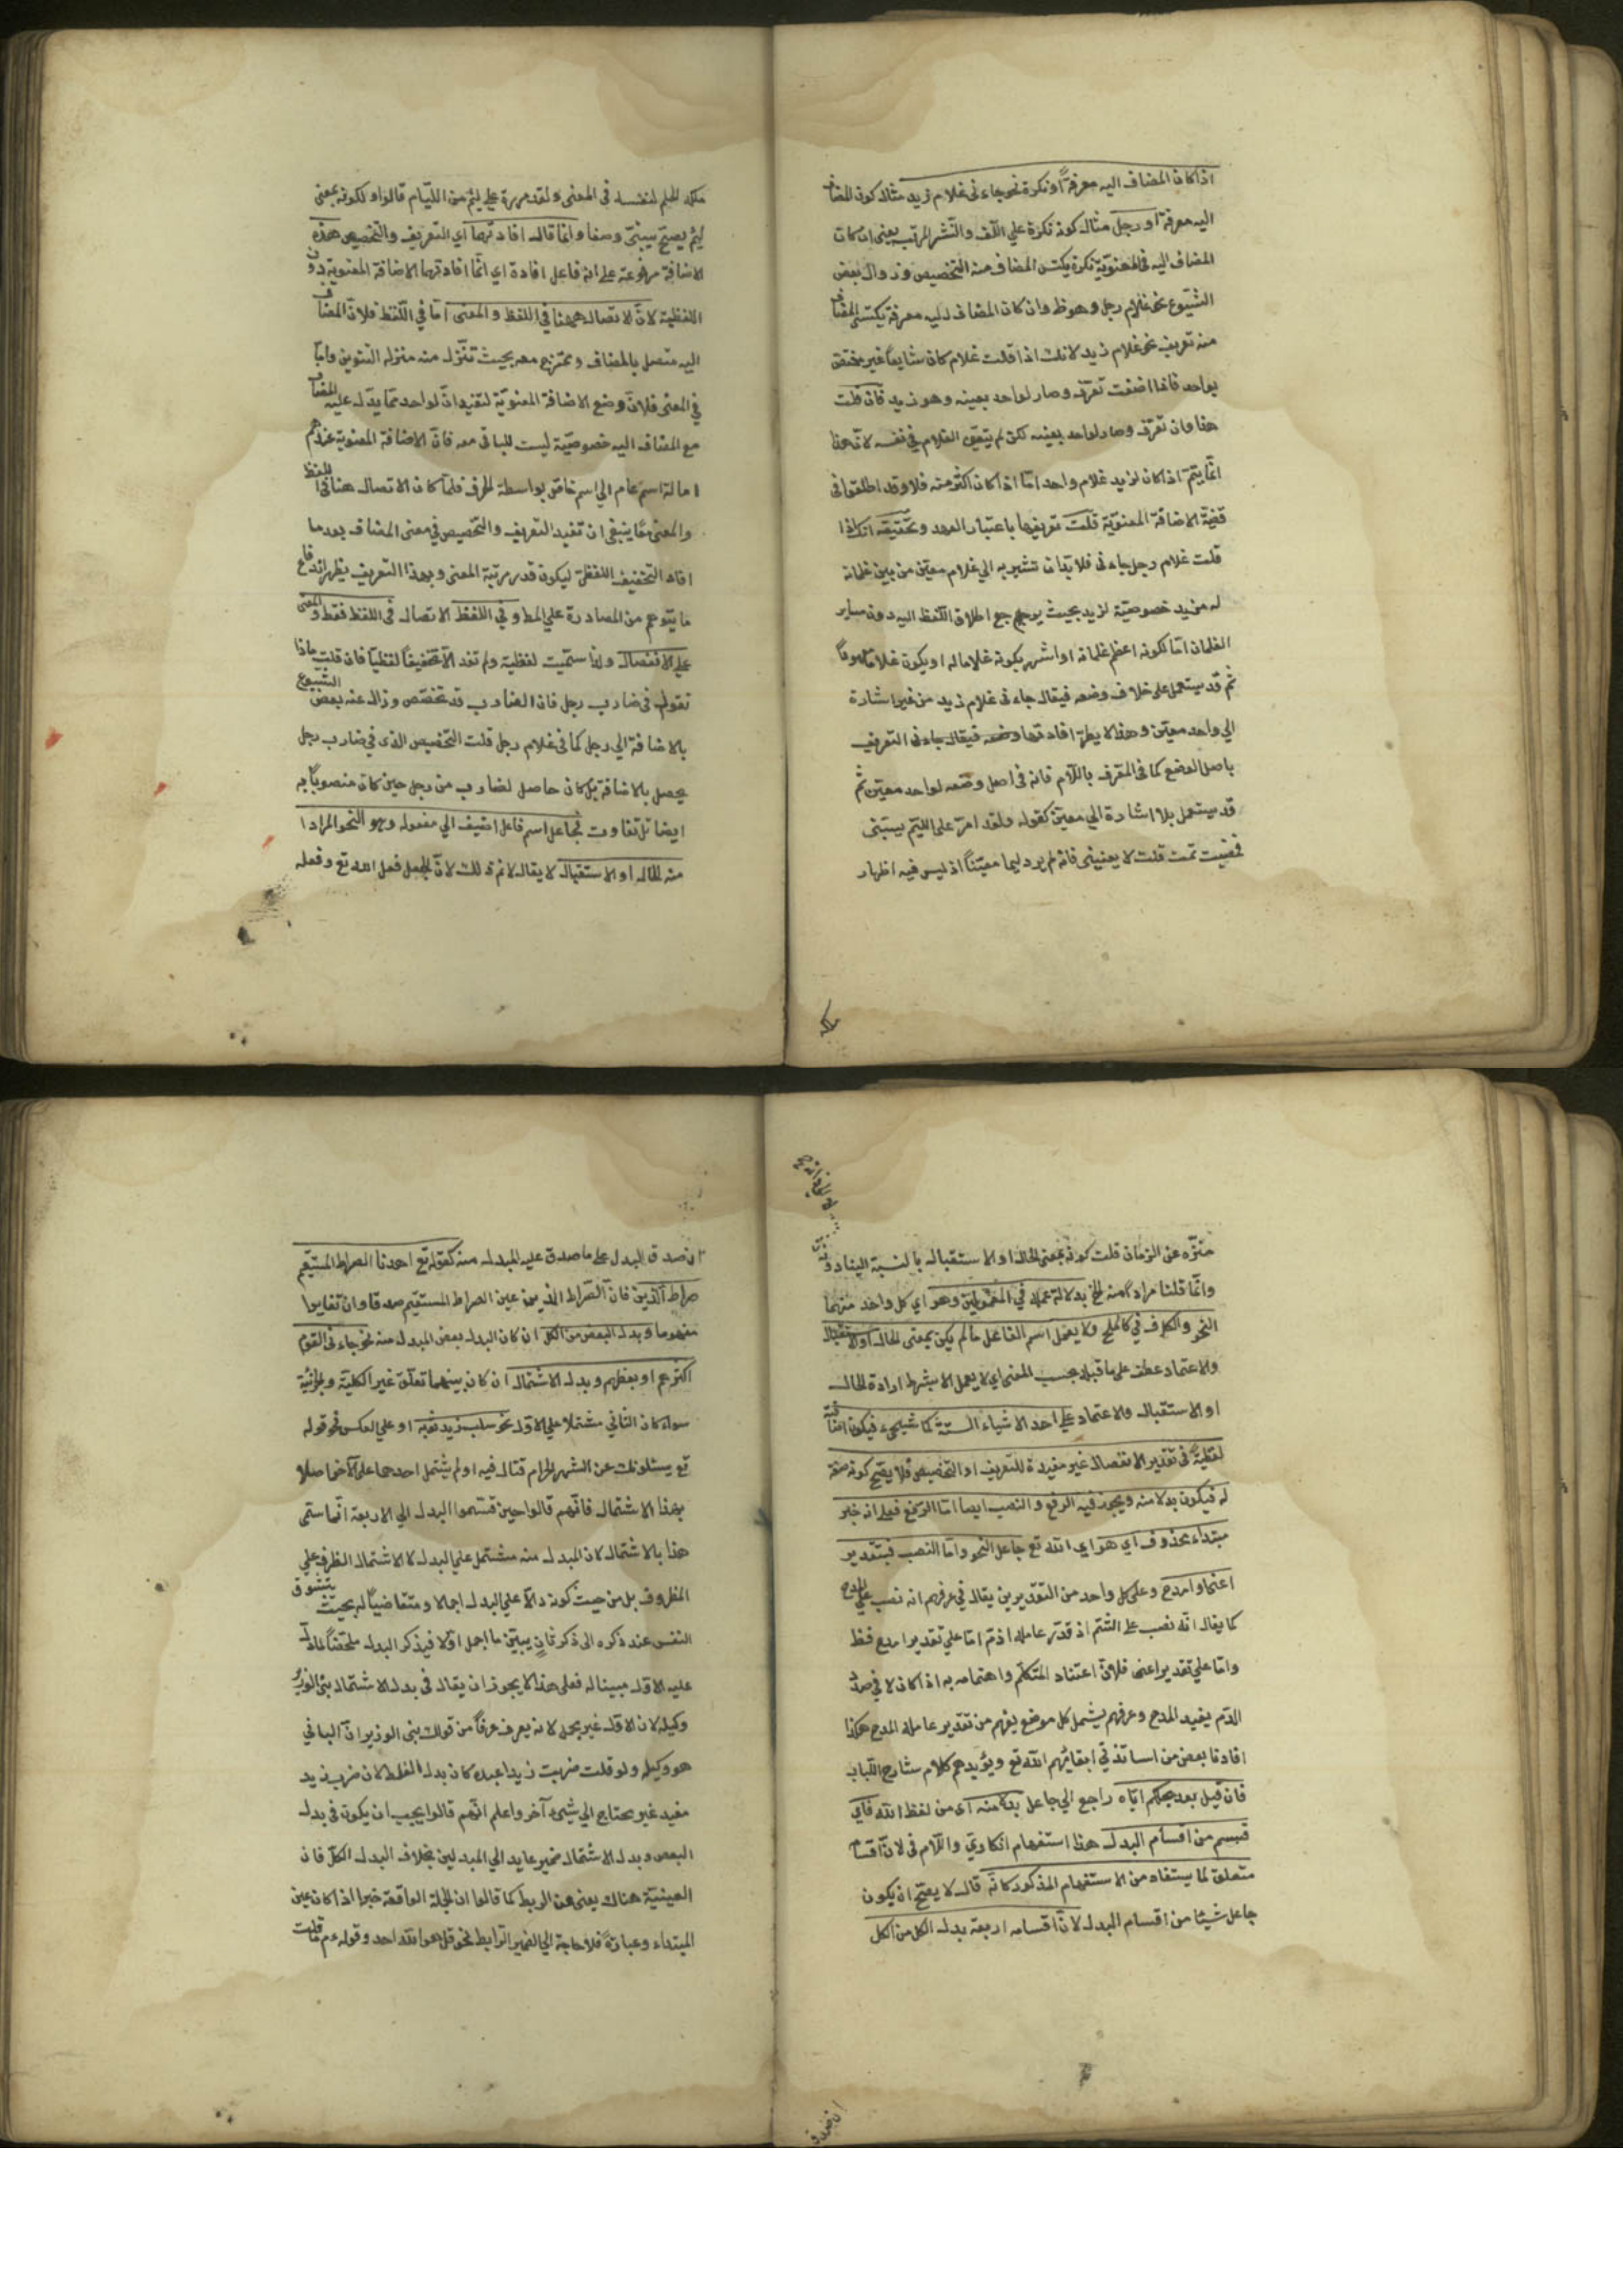 اذا كان المضاف اليه معرفة او نكرة نحو جاءنى غلام زيد مثال كون المضاف
اليه معرفة او رجل مثال كونه نكرة علي اللّف والنّشر المرتب يعنى ان كان
المضاف اليه فى المعنويّة نكرة يكتسى المضاف منه التخصيص وزوال بعض
الشيوع نحو غلام رجل وهو ظ وان كان المضاف اليه معرفة يكتسى المضاف
منه تعريف نحو غلام زيد لانك اذا قلت غلام كان شايعا غير مختص
بواحد فاذا اضفت تعرّف وصار لواحد بعينه وهو زيد فان قلت
هذا وان تعرّف وصار لواحد بعينه لكن لم يتعيّن الغلام فى نفسه لانّ هذا
انّما يتمّ اذا كان لزيد غلام واحد امّا اذا كان اكثر منه فلا وقد اطلقوا فى
قضية الاضافة المعنويّة قلت تعريفها باعتبار العهد وتحقيقه انك اذا
قلت غلام رجل جاءنى فلا بد ان تشير به الي غلام معيّن من بين غلمانه
له مزيد خصوصيّة لزيد بحيث يرجع اطلاق اللّفظ اليه دون ساير
الغلمان امّا لكونه اعظم غلمانه او اشهر بكونه غلاما له او يكون غلاما معهودا
ثم قد يستعمل على خلاف وضعه فيقال جاءنى غلام زيد من غير اشارة
الي واحد معيّن وهذا لا يضرّ افادتها وضعه فيقال جاءنى التعريف
باصل الوضع كما فى المعرف باللّام فانه فى اصل وضعه لواحد معيّن ثم
قد يستعمل بلا اشارة الي معيّن كقوله ولقد امرّ على اللئيم يسبّنى
فمضيت ثمت قلت لا يعنينى فانه لم يرد لئيما معيّنا اذ ليس فيه اظهار
ملكة الحلم لنفسه فى المعنى ولقد مررت علي لئيم من اللّيام قالوا ولكونه بمعنى
لئيم يصحّ يسبّنى وصفا وانّما قال افادتها اي التّعريف والتخصيص هذه
الاضافة مرفوعة على انه فاعل افادة اي انّما افادتها الاضافة المعنوية دون
اللفظية لانّ الاتصال ههنا فى اللفظ والمعنى امّا في اللّفظ فلانّ المضاف
اليه متصل بالمضاف وممتزج معه بحيث تنزّل منه منزلة التنوين وامّا
في المعنى فلانّ وضع الاضافة المعنويّة لتفيد انّ لواحد ممّا يدل عليه المضاف
مع المضاف اليه خصوصيّة ليست للباقى معه فانّ الاضافة المعنوية عندهم
امالة اسم عام الي اسم خاصّ بواسطة الحرف فلمّا كان الاتصال هنا فى اللفظ
والمعنى معًا ينبغى ان تفيد التعريف والتخصيص في معنى المضاف بعد ما
افاد التخفيف اللفظى ليكون قدر مرتبة المعنى وبهذا التعريف يظهر اندفاع
ما يتوهم من المصادرة على المط وفي اللفظ الاتصال فى اللفظ فقط والمعنى
على الانفصال ولذا سمّيت لفظية ولم تفد الّا تخفيفًا لفظيا فان قلت ماذا
تقول فى ضارب رجل فان الضارب قد تخصّص وزال عنه بعض الشيوع
بالاضافة الي رجل كما فى غلام رجل قلت التخصيص الذى فى ضارب رجل
يحصل بالاضافة بل كان حاصل لضارب من رجل حين كان منصوبًا به
ايضا بلا تفاوت فجاعل اسم فاعل اضيف الي مفعوله وهو النحو المراد
منه الحال او الاستقبال لا يقال لا نم ذلك لانّ الجعل فعل الله تع وفعله
منزّه عن الزمان قلت كونه بمعنى الحال او الاستقبال بالنسبة الينا دونه
وانّما قلنا مراد منه الخ بدلالة عمله في المفعولين وهو اي كل واحد منهما
النحو والظرف في كالملح ولا يعمل اسم الفاعل ما لم يكن بمعنى الحال او الاستقبال
والاعتماد عطف على ما قبله بحسب المعنى اي لا يعمل الا بشرط ارادة الحال
او الاستقبال والاعتماد على احد الاشياء الستة كما سيجيء فيكون اضافته
لفظيةً فى تقدير الانفصال غير مفيدة للتعريف او التخصيص فلا يصح كونه صفة
له فيكون بدلا منه ويجوز فيه الرفع والنصب ايضا امّا الرّفع فعلي انه خبر
مبتداء محذوف اي هو اي الله تع جاعل النحو وامّا النصب فبتقدير
اعنى او امدح وعلى كل واحد من التقديرين يقال في عرفهم انه نصب علي المدح
كما يقال انّه نصب على الشتم اذ قدّر عامله اذمّ امّا علي تقدير امدح فظ
وامّا علي تقدير اعنى فلانّ اعتناد المتكلم واهتمامه به اذا كان لا في صدد
الذم يفيد المدح وعرفهم يشمل كل موضع يفهم من تقدير عامله المدح هكذا
افادنا بعض من اساتذتي ابقائهم الله تع ويؤيدهم كلام شارح اللّباب
فان قيل بعد جعلكم ايّاه راجع الي جاعل بدلا منه اى من لفظ الله فاي
قسم من اقسام البدل هذا استفهام انكارىّ واللّام فى لانّ اقسامه
متعلق لما يستفاد من الاستفهام المذكور كانّه قال لا يصحّ ان يكون
جاعل شيئا من اقسام البدل لانّ اقسامه اربعة بدل الكل من الكل
ان صدق البدل على ما صدق عليه المبدل منه كقوله تع اهدنا الصراط المستقيم
صراط الّذين فانّ الصّراط الذين عين الصراط المستقيم صدقا وان تغايرا
مفهوما وبدل البعض من الكل ان كان البدل بعض المبدل منه نحو جاءنى القوم
اكثرهم او بعضهم وبدل الاشتمال ان كان بينهما تعلّق غير الكليّة والجزئية
سواء كان الثاني مشتملا علي الاوّل نحو سلب زيد ثوبه او علي العكس نحو قوله
تع يسئلونك عن الشهر الحرام قتال فيه او لم يشتمل احدهما على الآخر اصلا
بهذا الاشتمال فانّهم قالوا حين قسّموا البدل الي الاربعة انّما سمّى
هذا بالاشتمال لان المبدل منه مشتمل على البدل لا كاشتمال الظرف علي
المظروف بل من حيث كونه دالا علي البدل اجمالا ومتقاضيًا له بحيث يتشوق
النفس عند ذكره الى ذكر ثانٍ يبيّن ما اجمل اوّلا فيذكر البدل ملخّصًا لما دلّ
عليه الاوّل مبينا له فعلى هذا لا يجوز ان يقال فى بدل الاشتمال بنى الوزير
وكيله لان الاوّل غير مجمل لانه يعرف عرفًا من قولك بنى الوزير انّ البانى
هو وكيله ولو قلت ضربت زيدا عبده كان بدل الغلط لان ضرب زيد
مفيد غير محتاج الي شيئ آخر واعلم انّهم قالوا يجب ان يكون في بدل
البعض وبدل الاشتمال ضمير عايد الي المبدلين بخلاف البدل الكلّ فان
العينيّة هناك يغنى عن الربط كما قالوا ان الجملة الواقعة خبرا اذا كان عين
المبتداء وعبارةً فلا حاجة الي الضمير الرّابط نحو قل هو الله احد وقوله م قلت